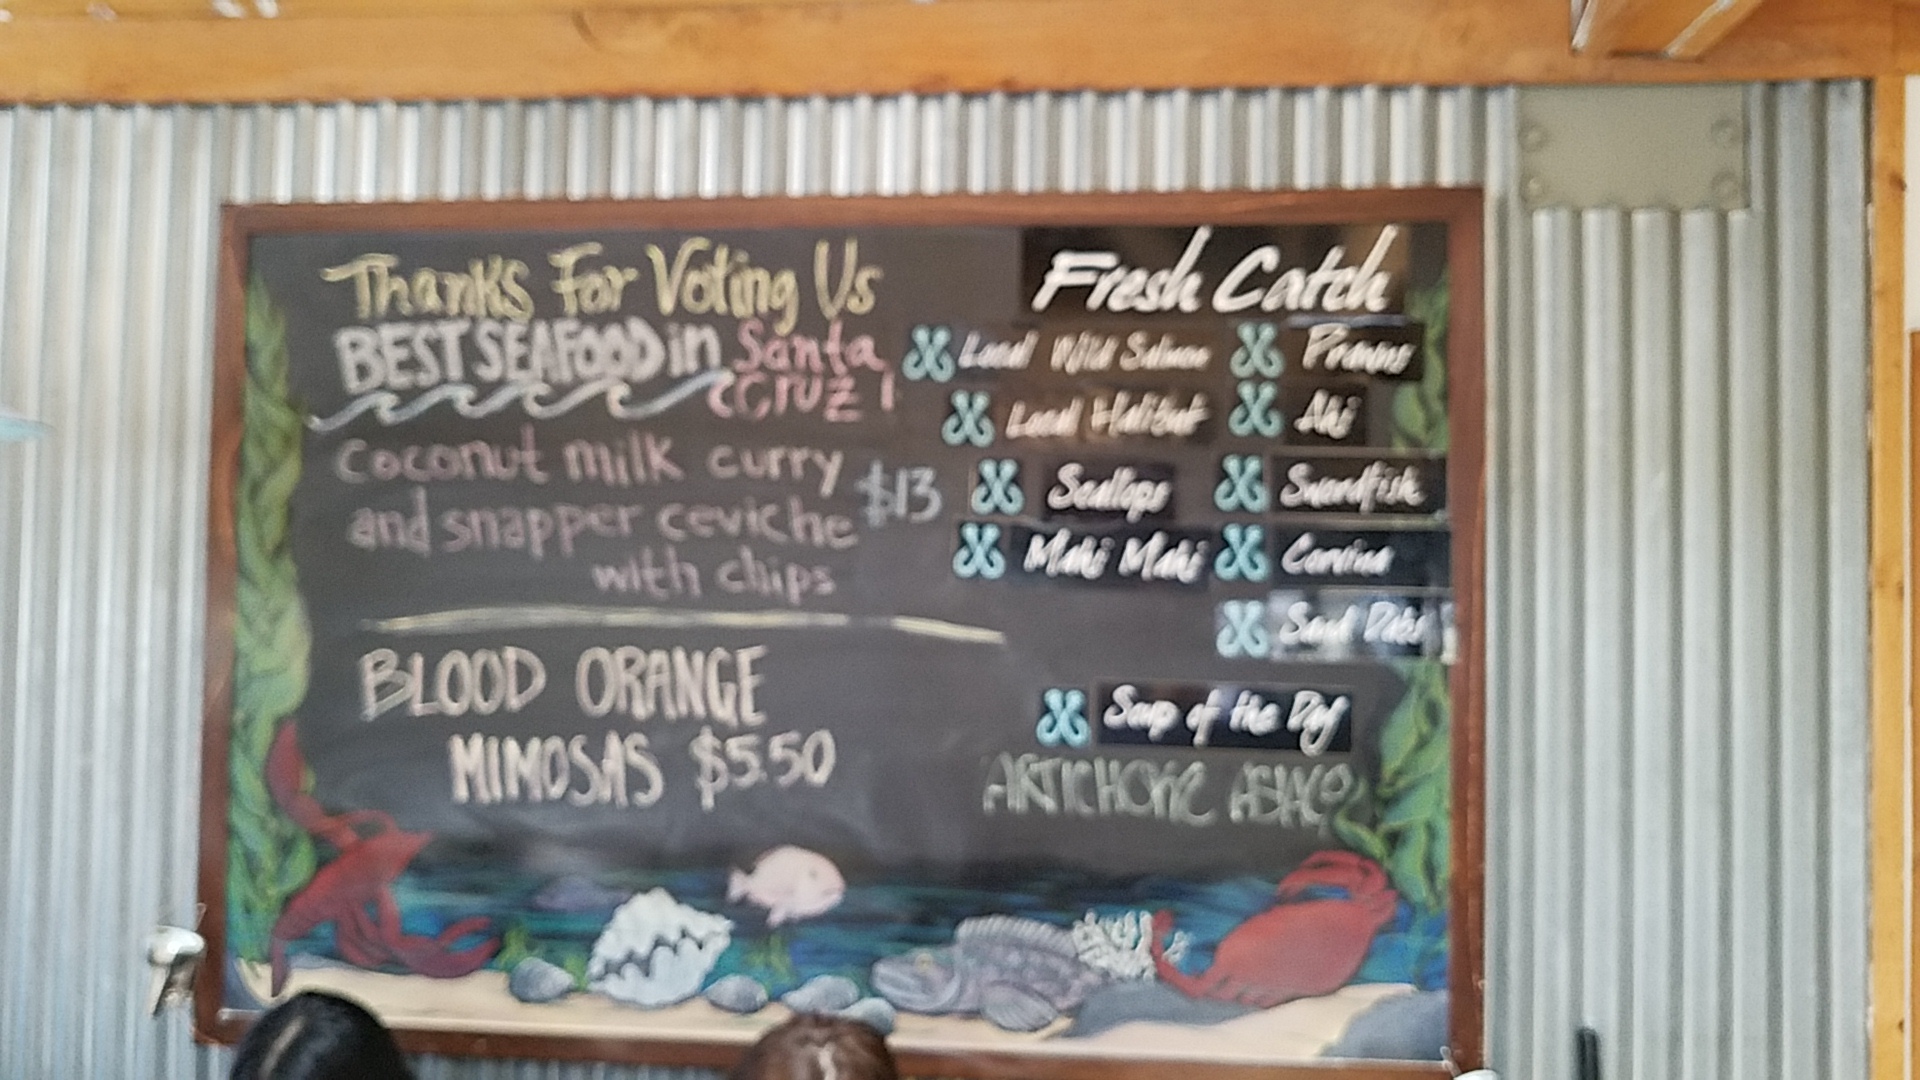 Thanks For Voting Us
BEST SEAFOOD in Santa
Cruz!
Coconut milk curry
and snapper ceviche $13
with chips
BLOOD ORANGE
MIMOSAS $5.50
Fresh Catch
Local Wild Salmon
Prawns
Local Halibut
Ahi
Scallops
Swordfish
Mahi Mahi
Corvina
Sand Dabs
Soup of the Day
ARTICHOKE